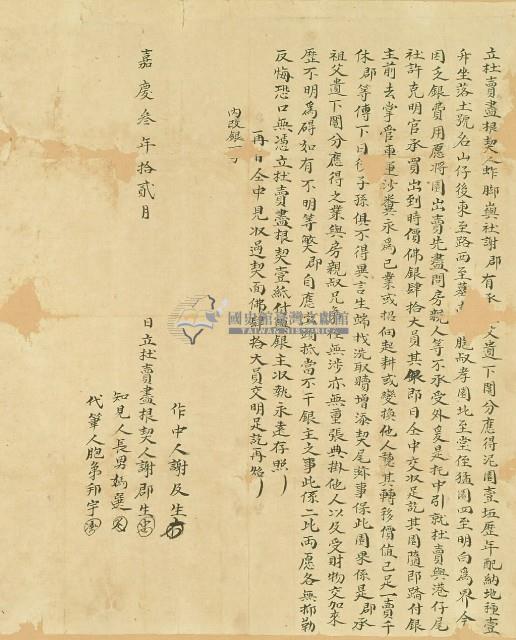 立杜賣盡根契人蚱脚崙社謝郡有承父遺下鬮分應得泥園壹垣歷年配納地種壹
斗坐落土號名山仔後東至路西至墓南至胞叔孝園北至堂侄猛園四至明白為界今
因乏銀費用愿將園出賣先盡問房親人等不承受外爰是托中引就杜賣與港仔尾
社許克明官承買出到時價佛銀肆拾大員其銀即日仝中交收足訖其園隨即踏付銀
主前去掌管車運沙糞永為己業或招佃起耕或變換他人聽其轉移價值已足一賣千
休郡等傳下日後子孫俱不得異言生端找洗取贖增添契尾等事保此園果係是郡承
祖父遺下鬮分應得之業與房親叔兄弟侄無涉亦無重張典掛他人以及受財物交加來
歷不明為碍如有不明等獘郡自應出頭抵當不干銀主之事此係二比両愿各無抑勒
反悔恐口無憑立杜賣盡根契壹紙付銀主收執永遠存照
一再日仝中見收過契面佛銀肆拾大員交明足訖再炤
內改銀一
作中人謝及生
嘉慶叁年拾貳月 日立杜賣盡根契人謝郡生
知見人長男媽選
代筆人胞弟邦宇
國史館臺灣文獻館
TAIWAN HISTORICA